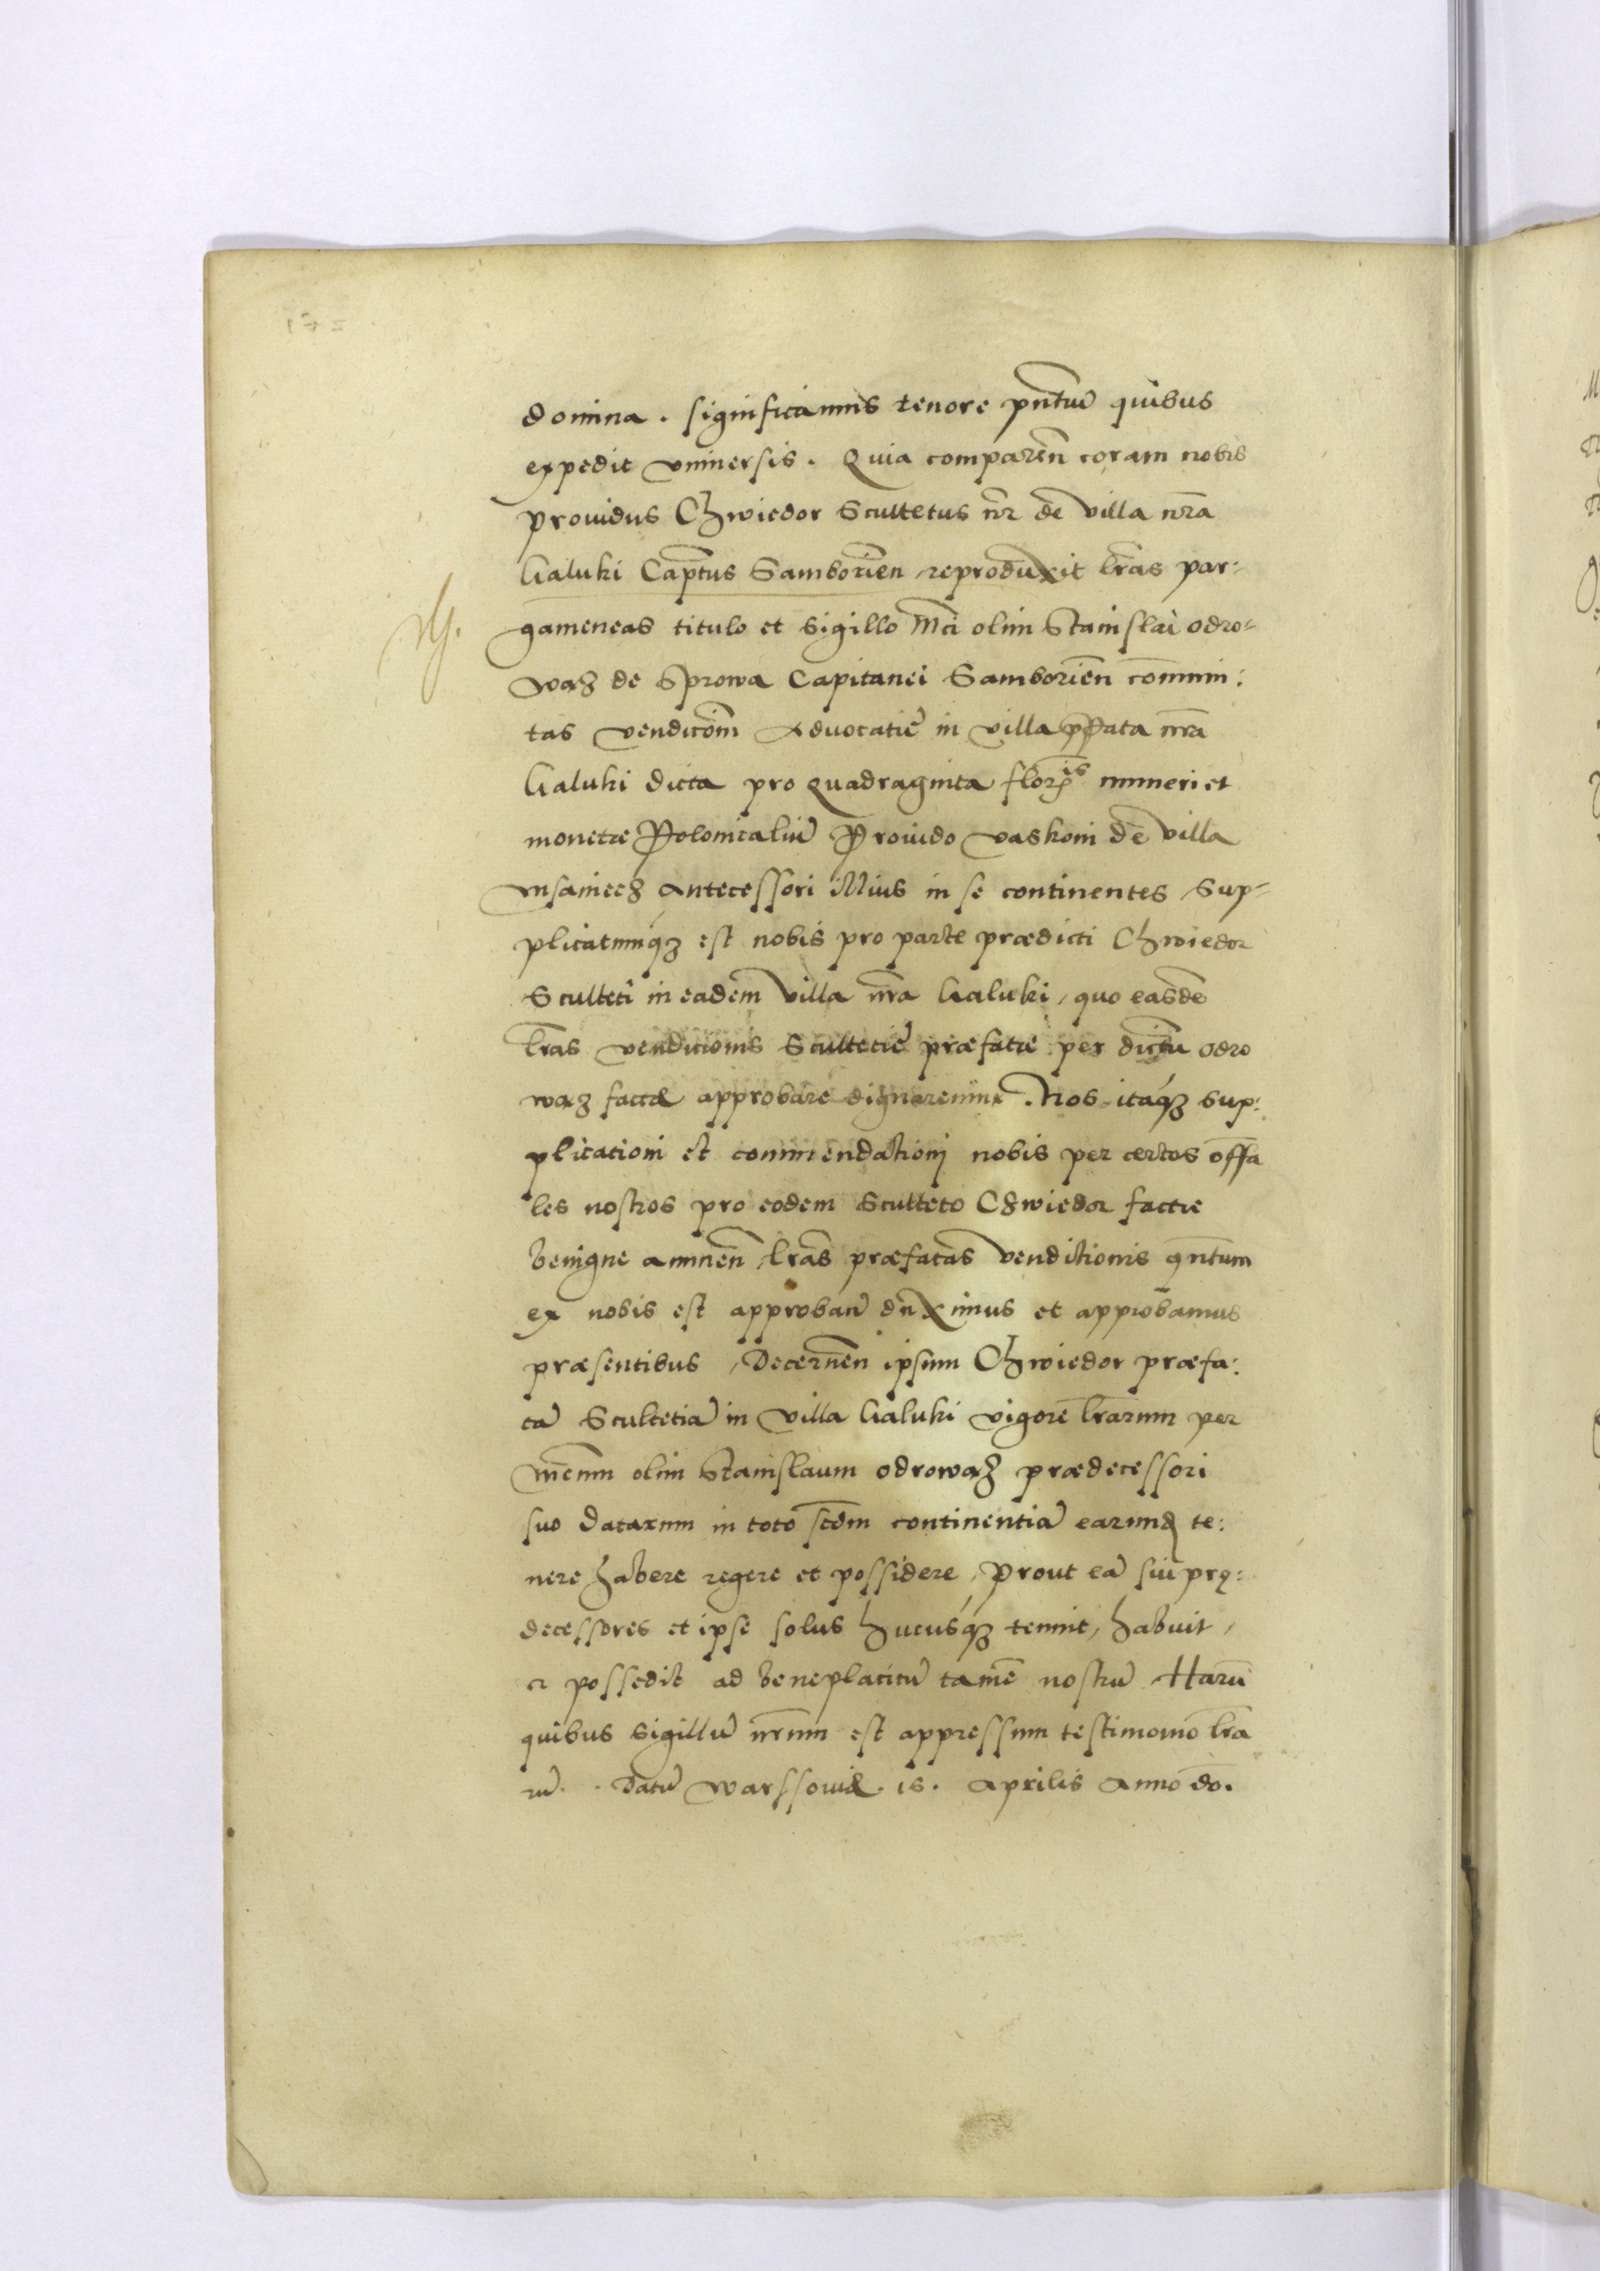 domina. significamus tenore pntiũ quibus
expedit vniuersis. Quia comparen̄ coram nobis
prouidus Chwiedor Scultetus nr̄ de villa nr̄a
Galuki Cap̄tus Samborien̄ reproduxit lr̄as par:
gameneas titulo et sigillo Mci olim Stanislai odro-
wąz de Sprowa Capitanei Samborien̄ com̄mi:
tas vendicōm Aduocatiæ in villa p̄fata nr̄a
Galuki dicta pro quadraginta floreis numeri et
monetæ Polonicaliũ Prouido Vaskoni de villa
antecessori illius in se continentes Sup-
plicatumq́ꝫ est nobis pro parte prædicti Chwiedor
Sculteti in eadem villa nr̄a Galuki, quo easdē
lr̄as vendicionis Scultetiæ præfatæ per dictũ odro
wąz factæ approbare dignaremur. Nos itaq́ꝫ sup:
plicationi et commendationi nobis per certos offa
les nostros pro eodem Sculteto Chwiedor factæ
benigne annuen̄, lr̄as præfatas venditionis qn̄tum
ex nobis est approban̄ duximus et approbamus
præsentibus, Decernen̄ ipsum Chwiedor præfa:
tã Scultetiã in villa Galuki vigore lr̄arum per
Mcum olim Stanislaum odrowąz prædecessori
suo datarum in toto scdm continentiã earundē te:
nere habere regere et possidere, prout eã sui prę:
decessores et ipse solus hucusq́ꝫ tenuit, habuit,
et possedit ad beneplacitũ tamē nostrũ Harũ
quibus sigillũ nr̄um est appressum testimonio lr̄a
rũ. Datũ Warssouiæ. 15. Aprilis Anno do.